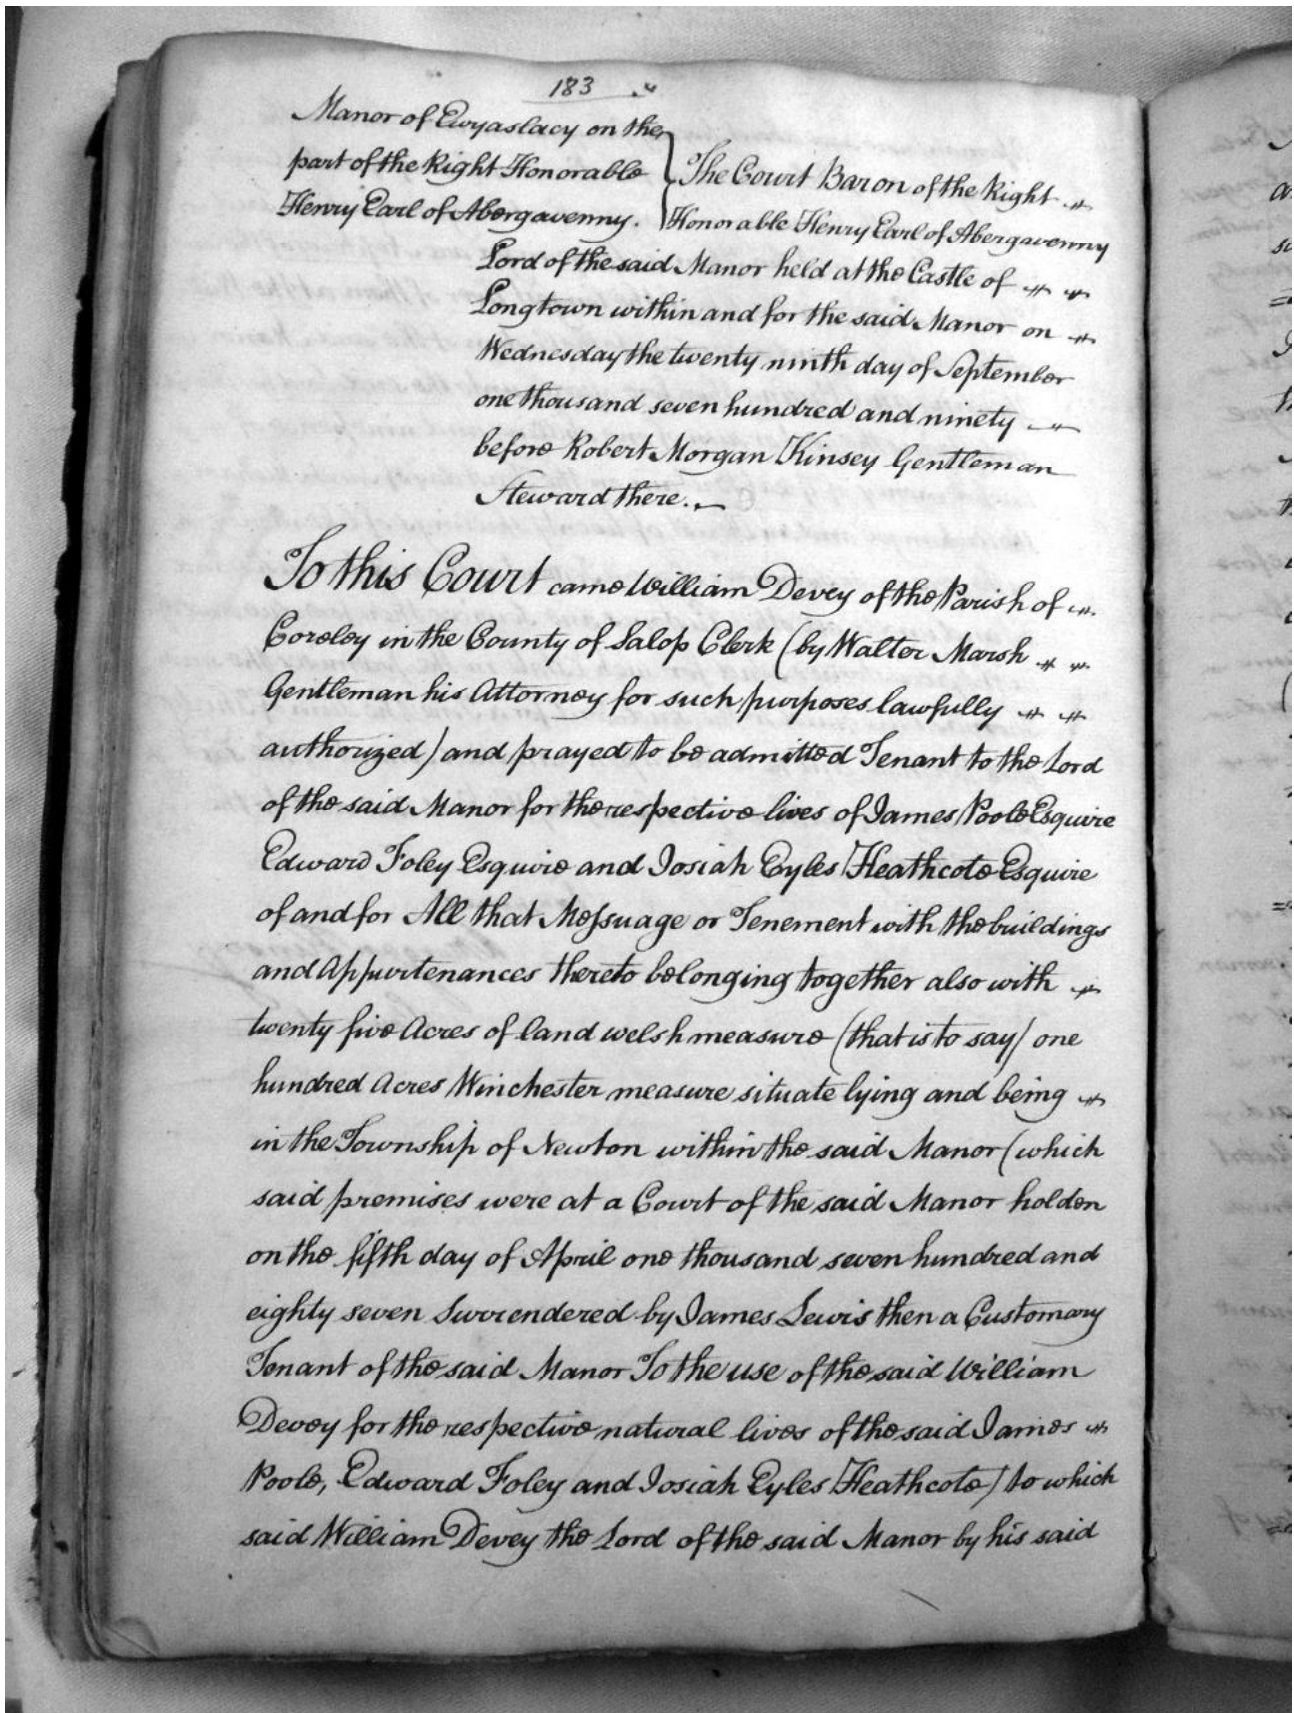 183
Manor of Ewyaslacy on the
part of the Right Honorable
Henry Earl of Abergavenny.
The Court Baron of the Right
Honorable Henry Earl of Abergavenny
Lord of the said Manor held at the Castle of
Longtown within and for the said Manor on
Wednesday the twenty ninth day of September
one thousand seven hundred and ninety
before Robert Morgan Kinsey Gentleman
Steward there.
To this Court came William Devey of the Parish of
Coreley in the County of Salop Clerk (by Walter Marsh
Gentleman his Attorney for such purposes lawfully
authorized) and prayed to be admitted Tenant to the Lord
of the said Manor for the respective lives of James Poole Esquire
Edward Foley Esquire and Josiah Eyles Heathcote Esquire
of and for All that Messuage or Tenement with the buildings
and Appurtenances thereto belonging together also with
twenty five Acres of land welsh measure (that is to say) one
hundred Acres Winchester measure situate lying and being
in the Township of Newton within the said Manor (which
said premises were at a Court of the said Manor holden
on the fifth day of April one thousand seven hundred and
eighty seven Surrendered by James Lewis then a Customary
Tenant of the said Manor To the use of the said William
Devey for the respective natural lives of the said James
Poole, Edward Foley and Josiah Eyles Heathcote) to which
said William Devey the Lord of the said Manor by his said